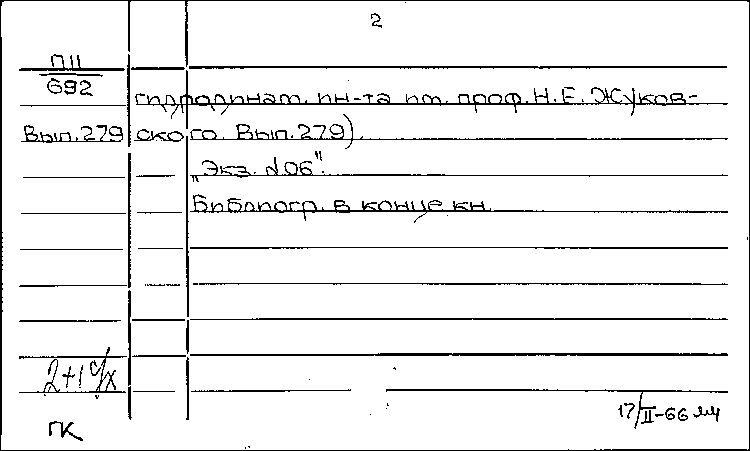 2
П11
692
гидродинам. ин-та им. проф. Н.Е. Жуков-
Вып.279 ского. Вып.279).
„Экз. №06".
Библиогр. в конце кн.
2+1 с/х
17/II-66 
ГК